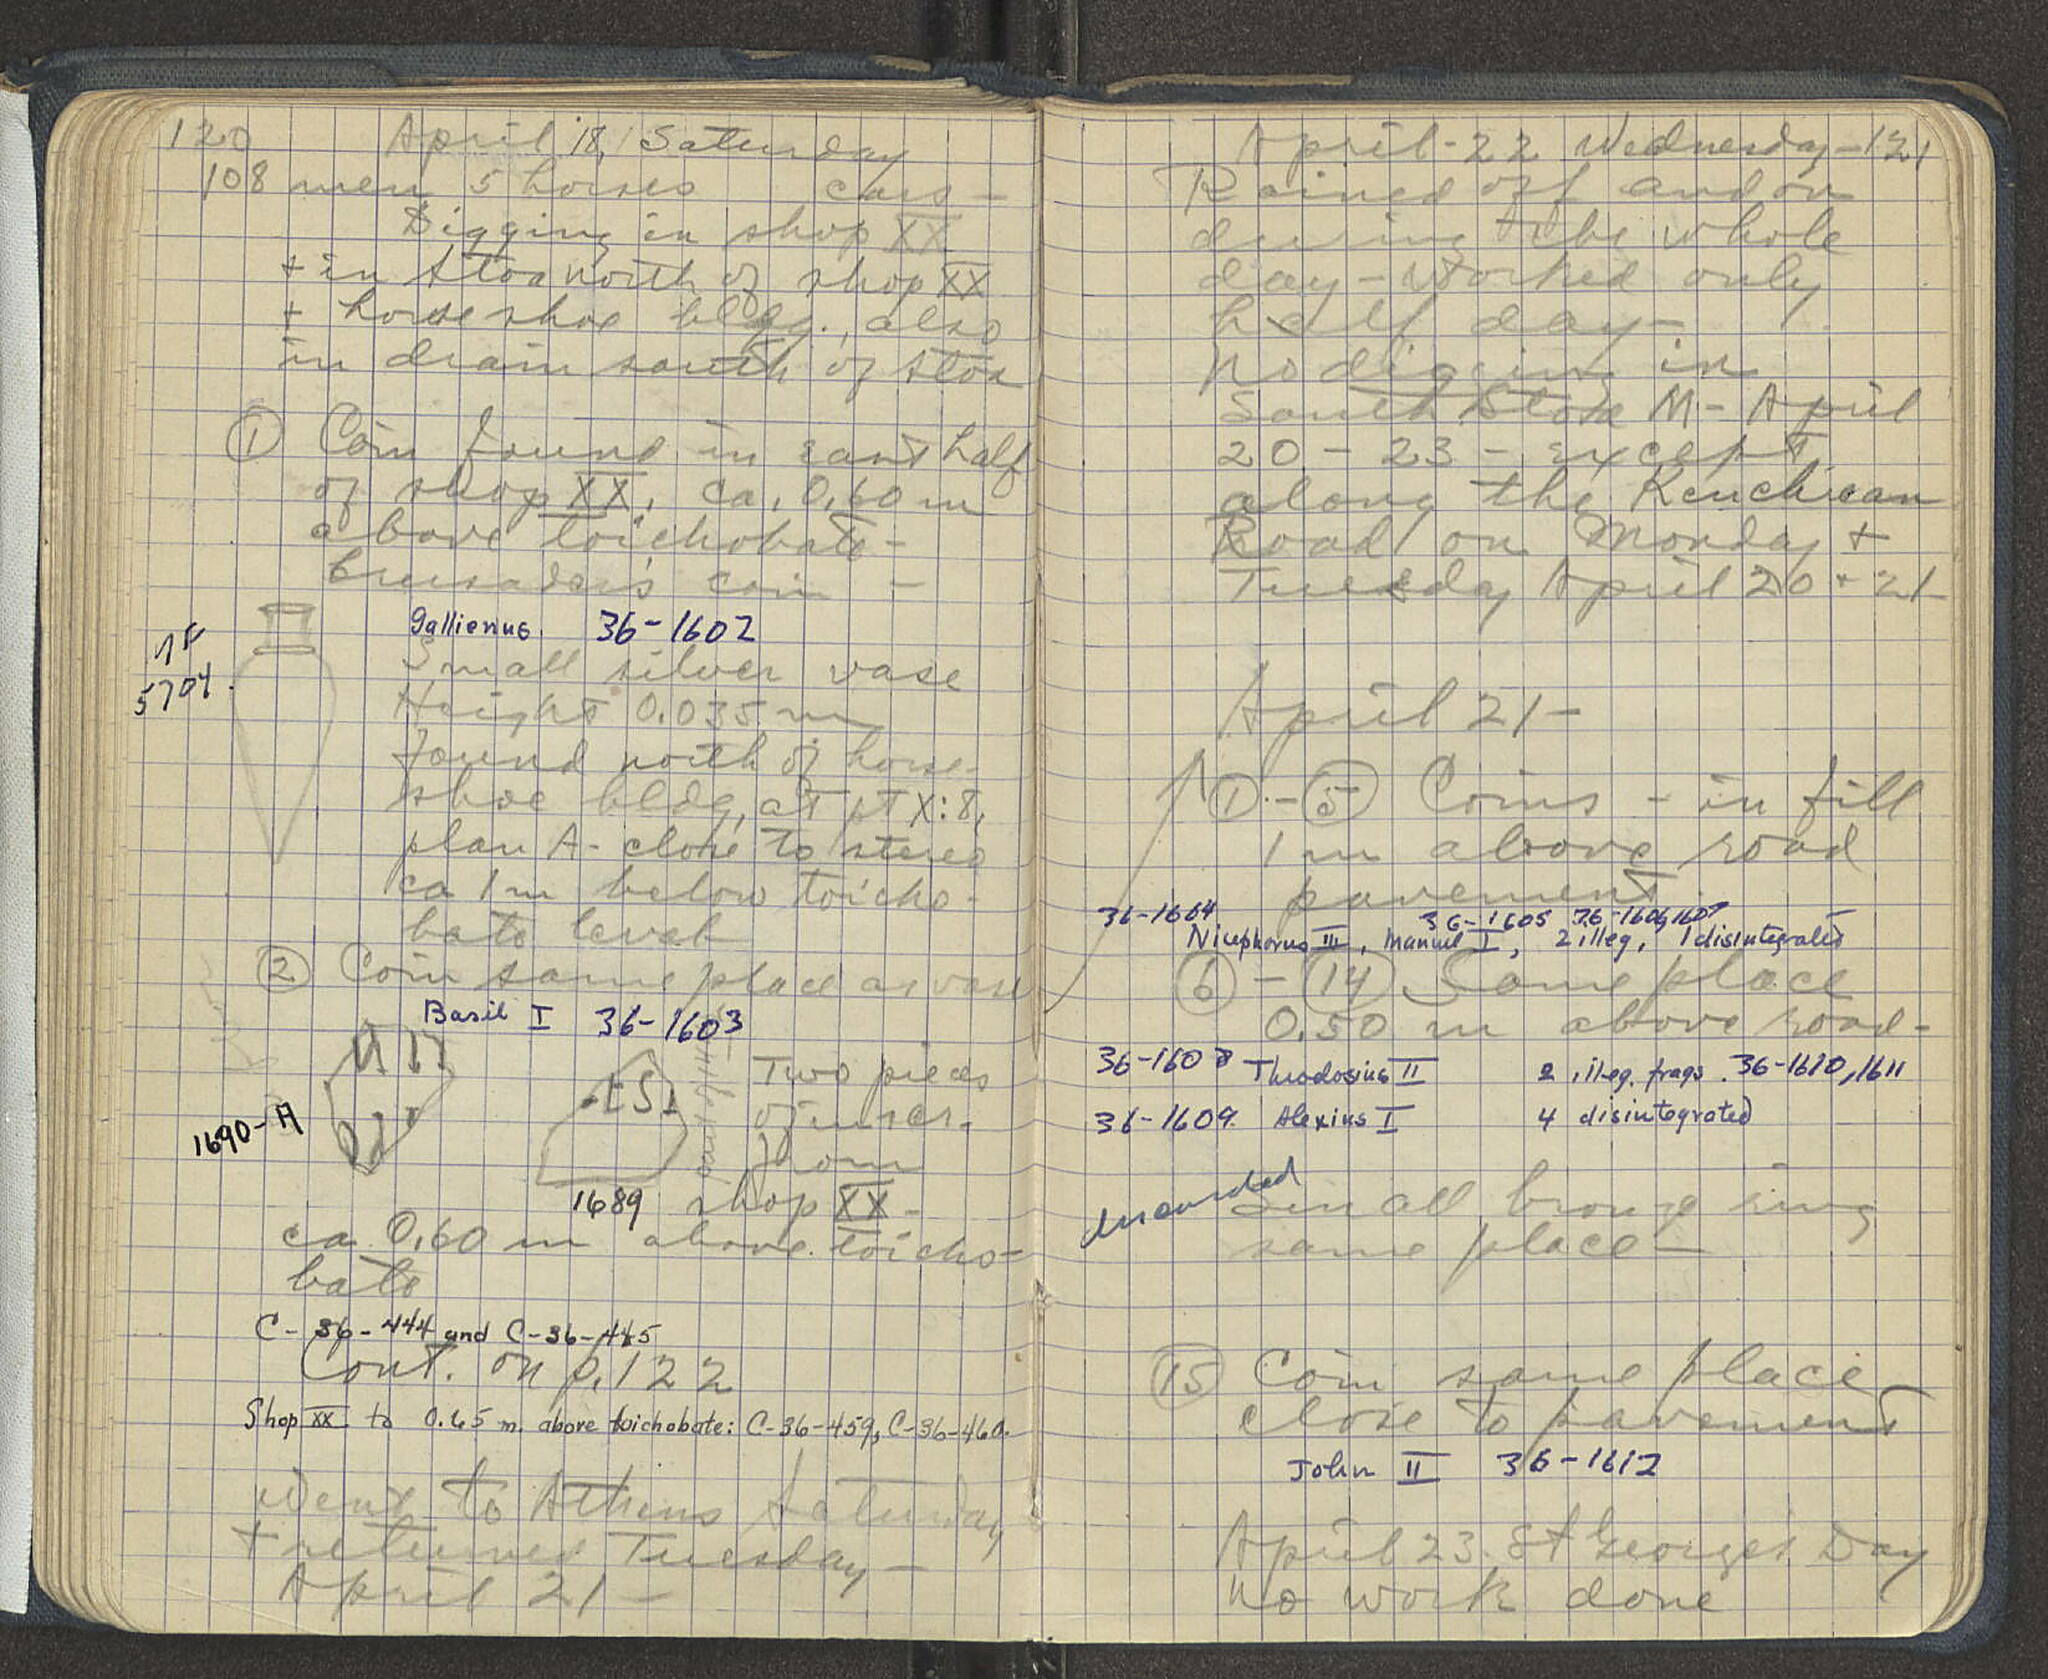 120 April 18, Saturday
108 men 5 horses cars –
Digging in shop XX
+ in Stoa north of shop XX
+ horse shoe bldg., also
in drain south of Stoa
① Coin found in east half
of shop XX, ca. 0.60 m
above toichobate –
Crusader's coin –
Gallienus. 36-1602
MF
5704.
Small silver vase
Height 0.035 m
found north of horse-
shoe bldg, at pt X:8,
plan A – close to stereo
ca 1 m below toicho-
bate level
② Coin same place as vase
Basil I 36-1603
Two pieces
of inscr.
from
1690-A
1689 shop XX –
ca 0.60 m above toicho-
bate
C-36-444 and C-36-445
Cont. on p. 122
Shop XX to 0.65 m. above toichobate: C-36-459, C-36-460.
Went to Athens Saturday
+ returned Tuesday –
April 21 –
April – 22 Wednesday – 121
Rained off and on
during the whole
day – worked only
half day –
No digging in
South Stoa M – April
20 – 23 – except
along the Kenchrean
Road on Monday +
Tuesday April 20 + 21
April 21 –
① – ⑤ Coins – in fill
1 m above road
pavement
36-1604 36-1605 36-1606, 1607
Nicephorus III, Manuel I, 2 illeg, 1 disintegrated
⑥ – ⑭ Same place
0.50 m above road –
36-1608 Theodosius II 2 illeg. frags. 36-1610, 1611
36-1609. Alexius I 4 disintegrated
discarded
Small bronze ring
same place –
⑮ Coin same place
close to pavement
John II 36-1612
April 23. St George's Day
No work done